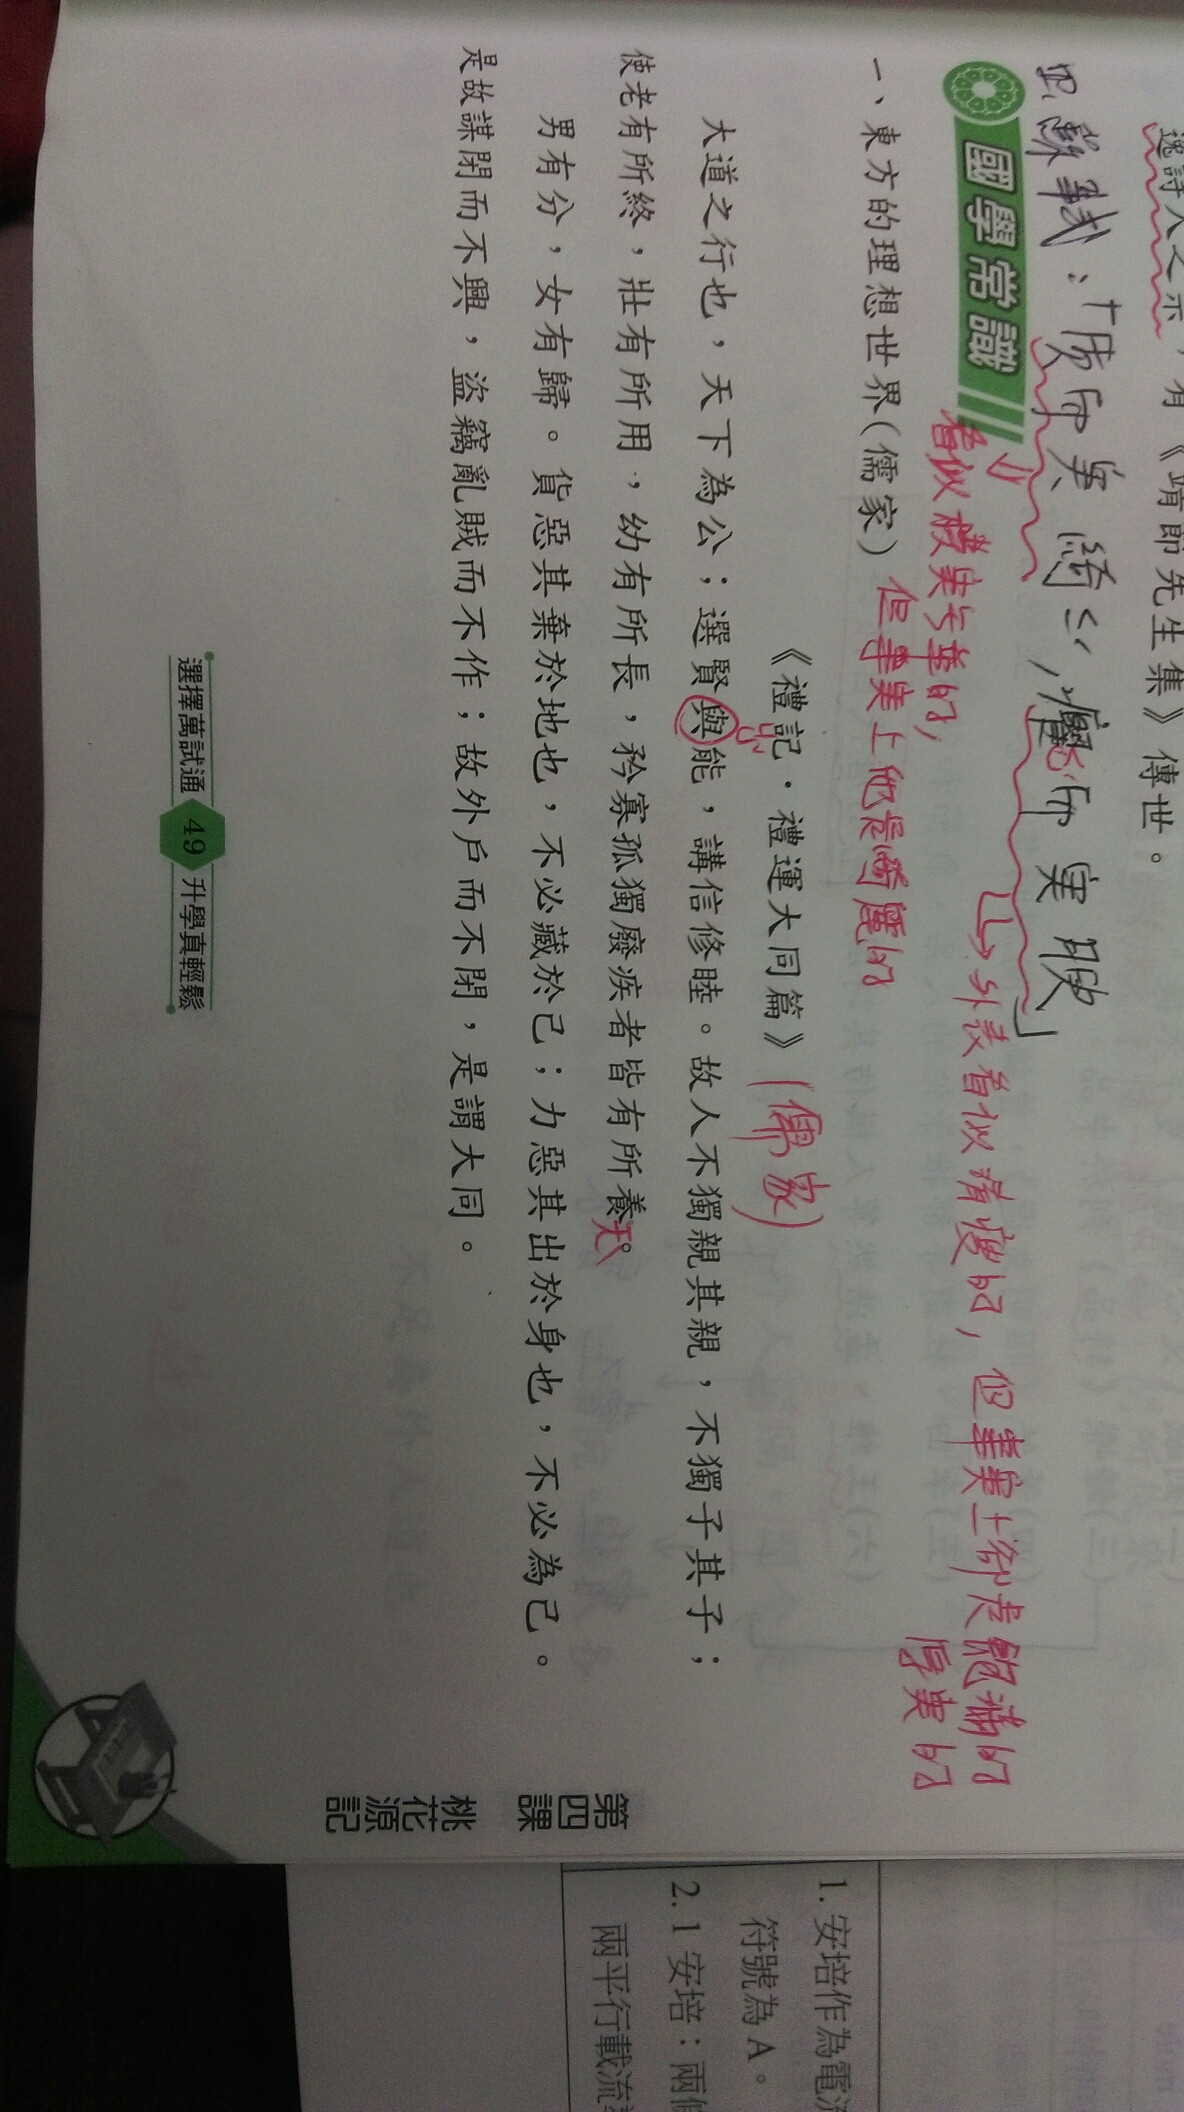 逸詩人之宗，有《靖節先生集》傳世。
四、蘇軾：「質而實綺，癯而實腴」
看似樸實無華的，
但事實上他是綺麗的
外表看似清瘦的，但事實上卻是飽滿的
厚實的
國學常識
一、東方的理想世界（儒家）
《禮記．禮運大同篇》（儒家）
大道之行也，天下為公；選賢與能，講信修睦。故人不獨親其親，不獨子其子；
使老有所終，壯有所用，幼有所長，矜寡孤獨廢疾者皆有所養。
男有分，女有歸。貨惡其棄於地也，不必藏於己；力惡其出於身也，不必為己。
是故謀閉而不興，盜竊亂賊而不作；故外戶而不閉，是謂大同。
選擇萬試通 49 升學真輕鬆
第四課
桃花源記
1. 安培作為電流
符號為 A。
2. 1 安培：兩
兩平行載流